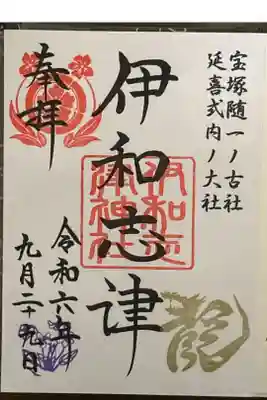 宝塚随一ノ古社
延喜式内ノ大社
奉拝
伊和志津
伊和志
津神社
令和六年
九月二十九日
龍